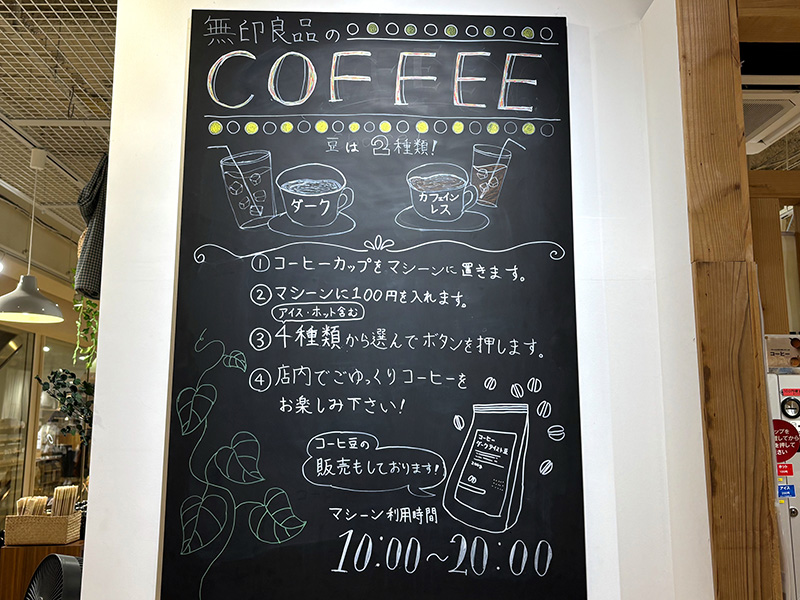 無印良品の
COFFEE
豆は2種類!
ダーク
カフェイン
レス
① コーヒーカップをマシーンに置きます。
② マシーンに100円を入れます。
アイス・ホット含む
③ 4種類から選んでボタンを押します。
④ 店内でごゆっくりコーヒーを
お楽しみ下さい!
コーヒー
ダークテイスト豆
200g
コーヒ豆の
販売もしております!
マシーン利用時間
10:00~20:00
コーヒー
ホット
アイス